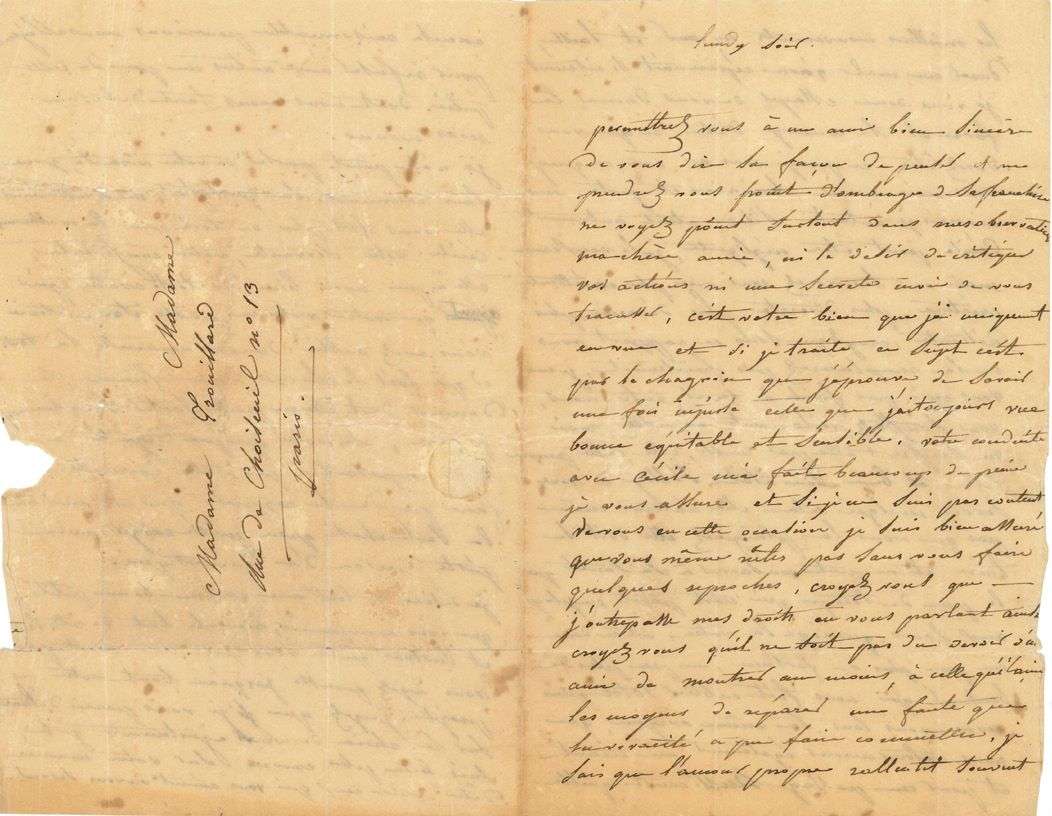 Madame
Madame Trouillard
Rue de Choiseuil n° 13
paris.
lundy soir.
permettrez vous à un ami bien sincère
de vous dir sa façon de penser et ne
prendrez vous point d'ombrage de sa franchise
ne voyez point surtout dans mes observations
ma chère amie, ni le désir de critiquer
vos actions ni une secrete envie de vous
tracasser, c'est votre bien que j'ai uniquent
en vue et si je traite ce sujet c'est
par le chagrin que j'éprouve de savoir
une fois injuste celle que j'ai toujours vue
bonne équitable et sensible. votre conduite
avec Cécile m'a fait beaucoup de peine
je vous assure et si je ne suis pas content
de vous en cette occasion je suis bien assuré
que vous même n'êtes pas sans vous faire
quelques reproches, croyez vous que —
j'outrepasse mes droits en vous parlant ainsi
croyez vous qu'il ne soit pas du devoir d'un
ami de montrer au moins, à celle qu'il aime
les moyens de réparer une faute que
sa vivacité a pu faire commettre, je
sais que l'amour propre rallentit souvent